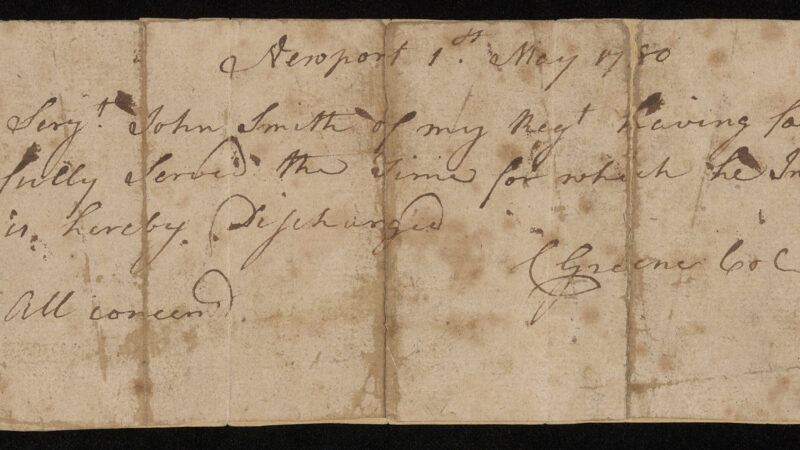 Newport 1st. May 1780
Serjt. John Smith of my Regt having fa
fully Served the time for which he In
is hereby Discharged
C Greene Col
All concernd.